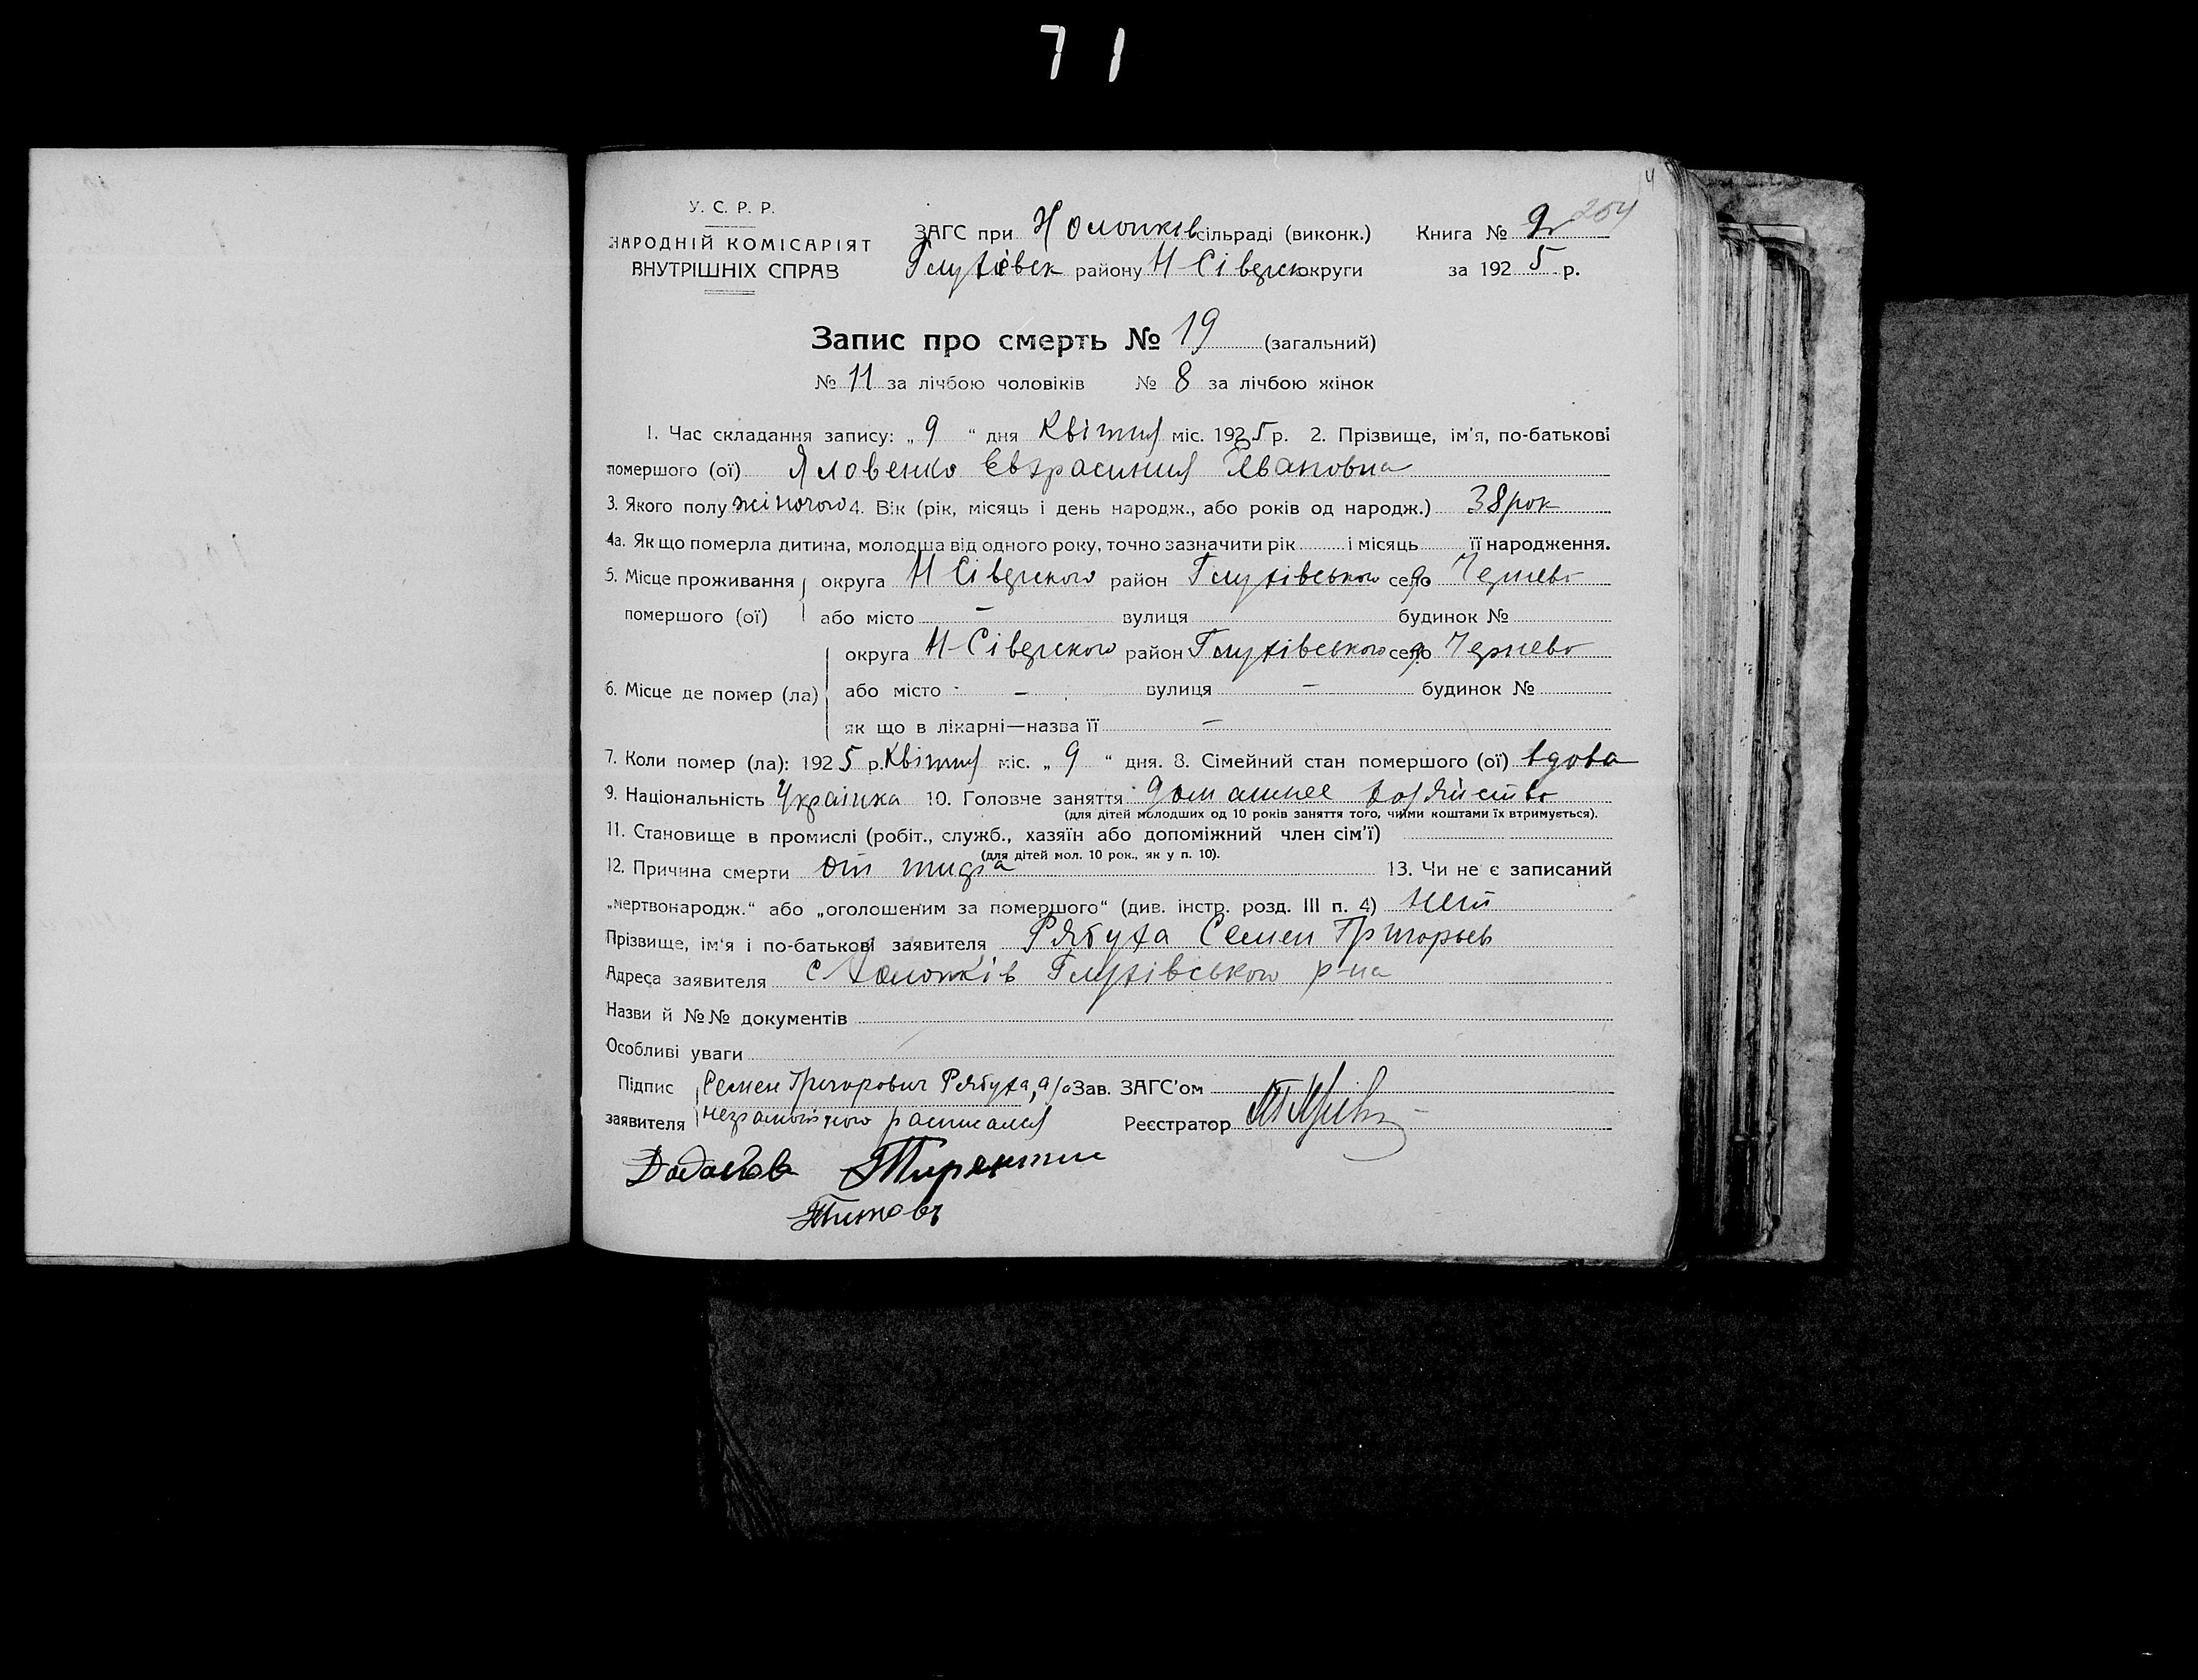 71
У. С. Р. Р.
НАРОДНІЙ КОМІСАРІЯТ
ВНУТРІШНІХ СПРАВ
ЗАГС при Холопків сільраді (виконк.)
Глухівск району Н-Сіверск округи
Книга № 2 204
за 1925 р.
Запис про смерть № 19 (загальний)
№ 11 за лічбою чоловіків № 8 за лічбою жінок
1. Час складання запису: „ 9 “ дня Квітня міс. 1925 р. 2. Прізвище, ім'я, по-батькові
помершого (ої) Яловенко Евфрасиния Ивановна
3. Якого полу жіночого 4. Вік (рік, місяць і день народж., або років од народж.) 38 рок
4а. Як що померла дитина, молодша від одного року, точно зазначити рік і місяць її народження.
5. Місце проживання округа Н Сіверского район Глухівського село Чернево
помершого (ої) або місто – вулиця будинок №
округа Н-Сіверского район Глухівського село Чернево
6. Місце де помер (ла) або місто – вулиця – будинок №
як що в лікарні—назва її –
7. Коли помер (ла): 1925 р. Квітня міс. „ 9 “ дня. 8. Сімейний стан помершого (ої) вдова
9. Національність Українка 10. Головне заняття домашнее хозяйство
(для дітей молодших од 10 років заняття того, чиїми коштами їх втримується).
11. Становище в промислі (робіт., служб., хазяїн або допоміжний член сім'ї)
(для дітей мол. 10 рок., як у п. 10).
12. Причина смерти от тифа 13. Чи не є записаний
„мертвонародж.“ або „оголошеним за помершого“ (див. інстр. розд. III п. 4) нет
Прізвище, ім'я і по-батькові заявителя Рябуха Семен Григорьев
Адреса заявителя с Холопків Глухівського р-на
Назви й №№ документів
Особливі уваги
Підпис Семен Григорович Рябуха, а за Зав. ЗАГС'ом
заявителя неграмотного расписался Реєстратор
Терентий
Титовъ